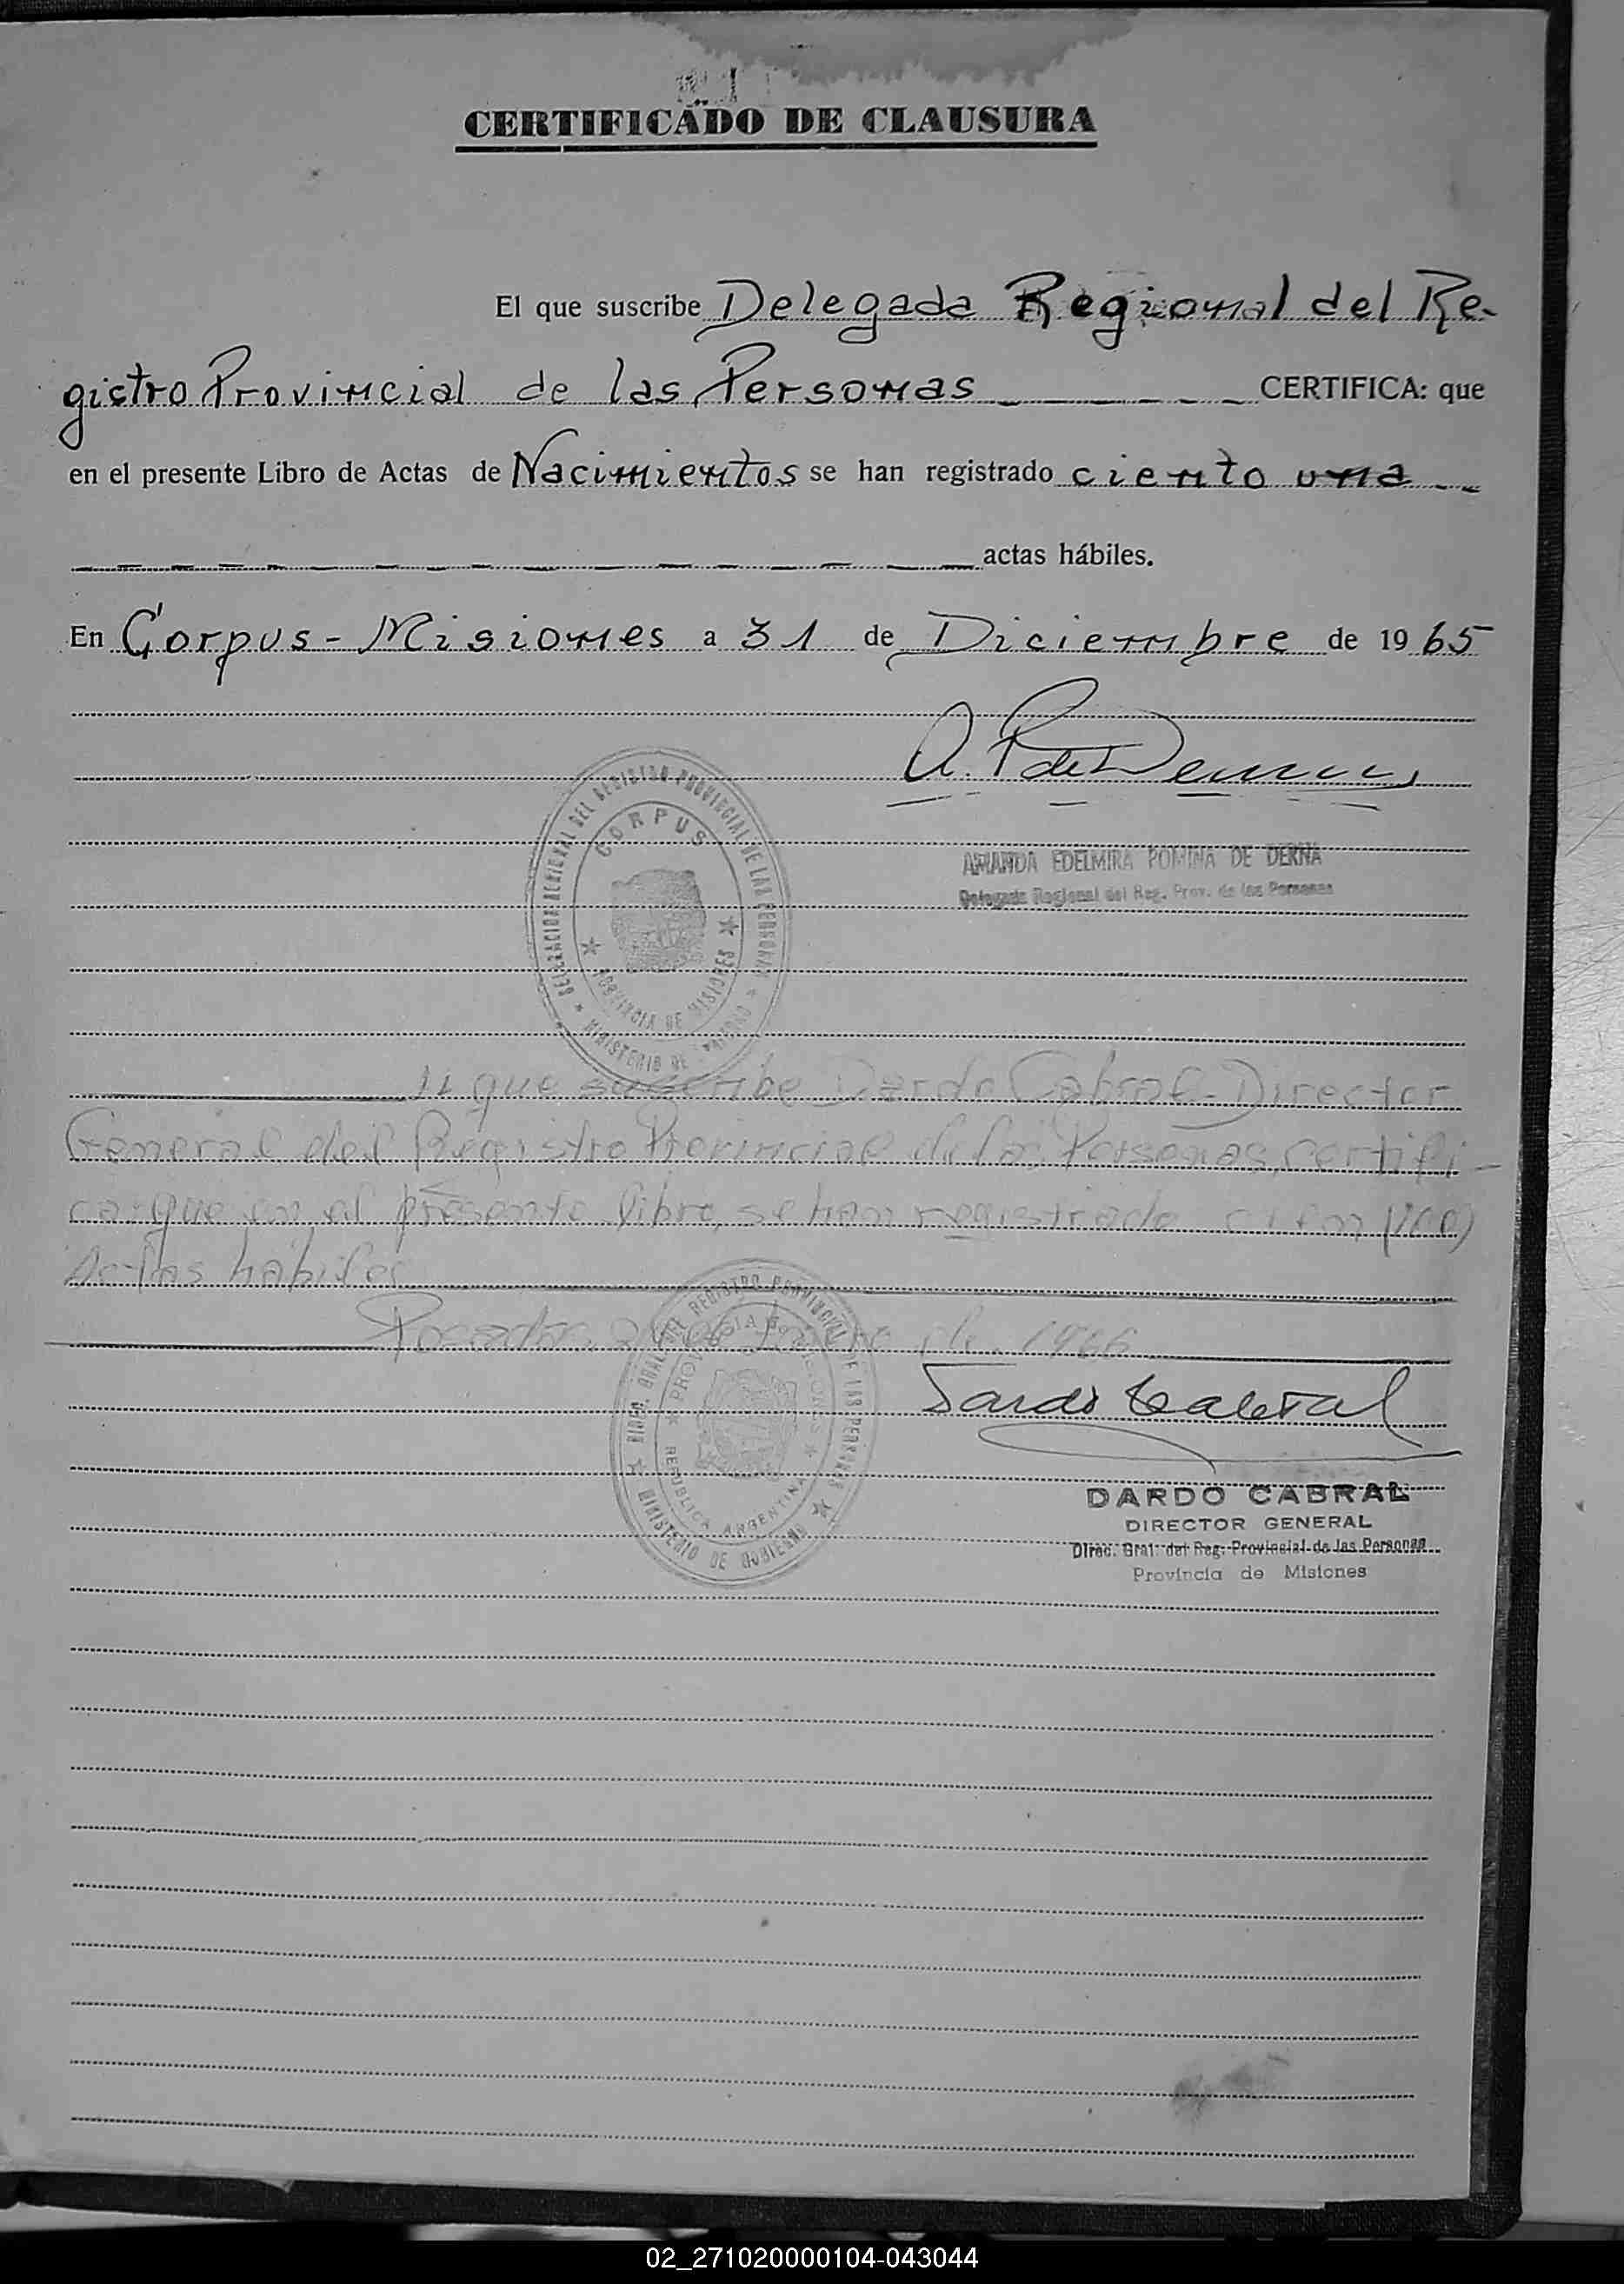 CERTIFICADO DE CLAUSURA
El que suscribe Delegada Regional del Re-
gistro Provincial de las Personas CERTIFICA: que
en el presente Libro de Actas de Nacimientos se han registrado ciento una
actas hábiles.
En Corpus - Misiones a 31 de Diciembre de 1965
A. P de Derna
DELEGACION REGIONAL DEL REGISTRO PROVINCIAL DE LAS PERSONAS
CORPUS
PROVINCIA DE MISIONES
MINISTERIO DE GOBIERNO
AMANDA EDELMIRA POMINA DE DERNA
Delegada Regional del Reg. Prov. de las Personas
que suscribe Dardo Cabral - Director
General del Registro Provincial de las Personas, certifi-
ca: que en el presente libro, se han registrado cien (100)
Actas hábiles
Posadas, de 1966
Dardo Cabral
DIREC. GRAL. DEL REGISTRO PROVINCIAL DE LAS PERSONAS
PROVINCIA DE MISIONES
REPUBLICA ARGENTINA
MINISTERIO DE GOBIERNO
DARDO CABRAL
DIRECTOR GENERAL
Direc. Gral. del Reg. Provincial de las Personas
Provincia de Misiones
02_271020000104-043044